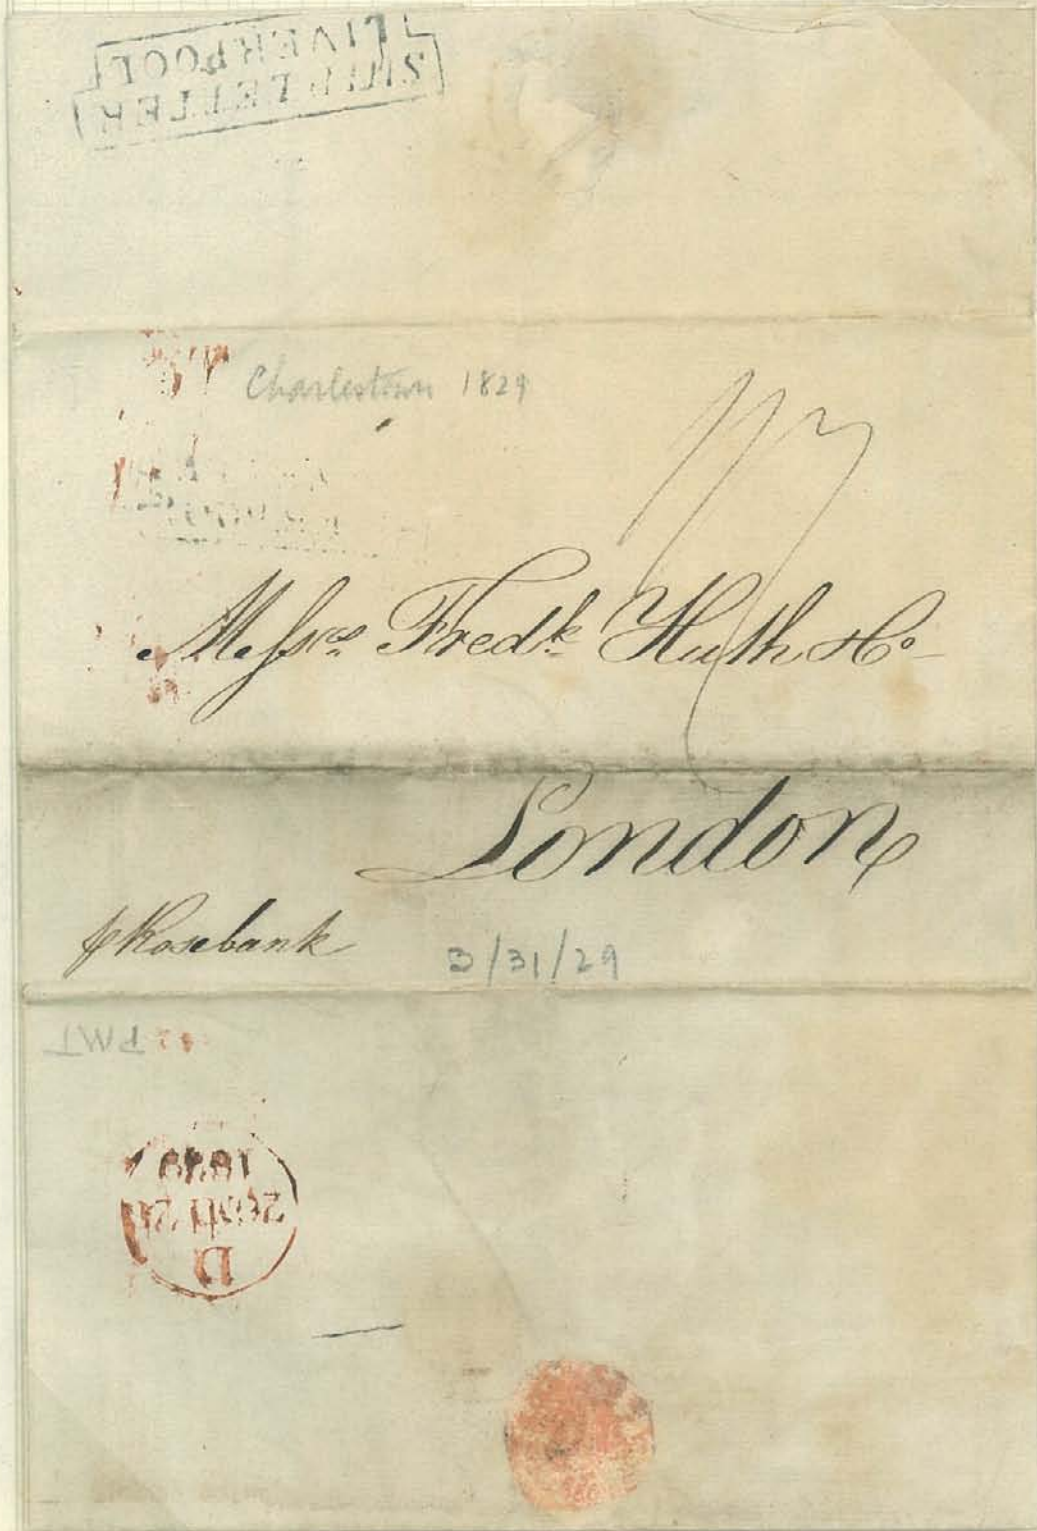 SHIP LETTER
LIVERPOOL
Charlestown 1829
Messrs. Fredk. Huth & Co
London
p Rosebank
3/31/29
PMT
D